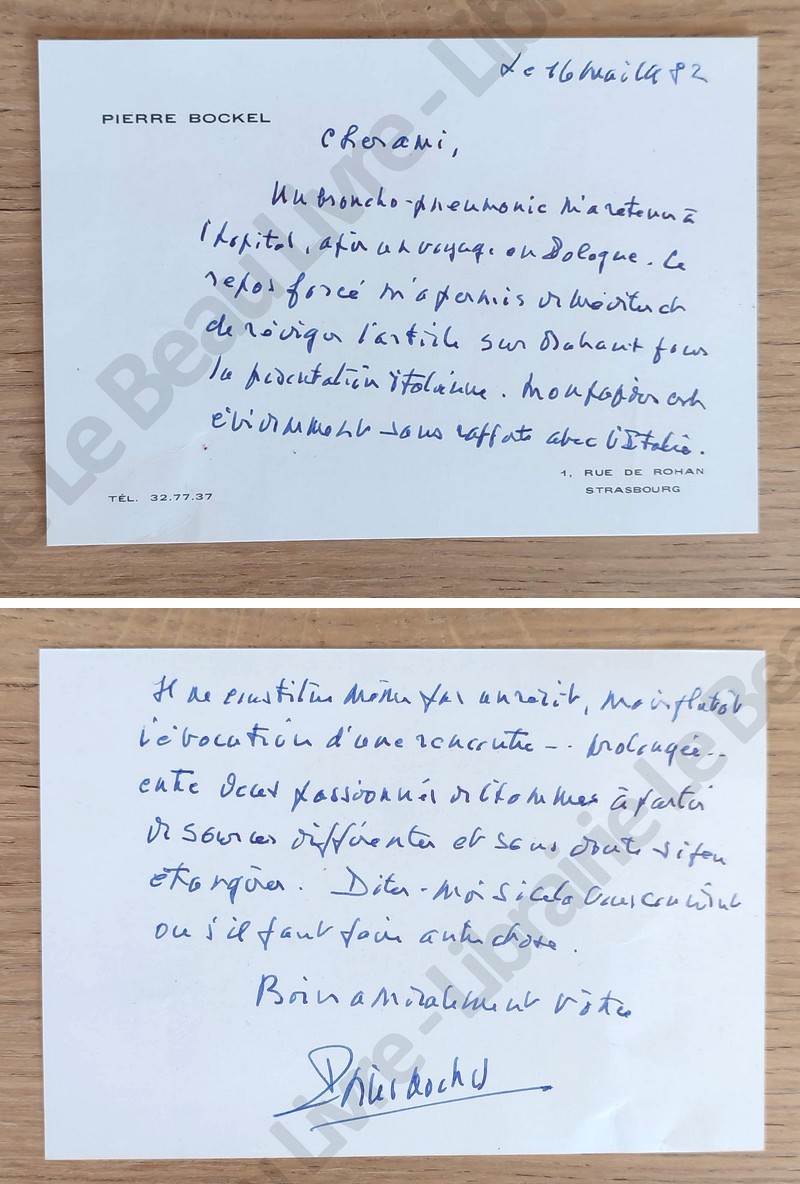 Le 16 mai 1982
PIERRE BOCKEL
Cher ami,
Un broncho-pneumonie m'a retenu à
l'hôpital, après un voyage en Pologne. Ce
repos forcé m'a permis de méditer et
de rédiger l'article sur Malraux pour
la présentation italienne. Mon papier est
évidemment sans rapports avec l'Italie.
1, RUE DE ROHAN
TÉL. 32.77.37
STRASBOURG
Il ne constitue même pas un récit, mais plutôt
l'évocation d'une rencontre -- prolongée --
entre deux passionnés de l'homme à partir
de sources différentes et sans doute si peu
étrangères. Dites-moi si cela vous convient
ou s'il faut faire autre chose.
Bien amicalement vôtre
Pierre Bockel
Librairie Le Beau Livre - Librairie Le Beau Livre